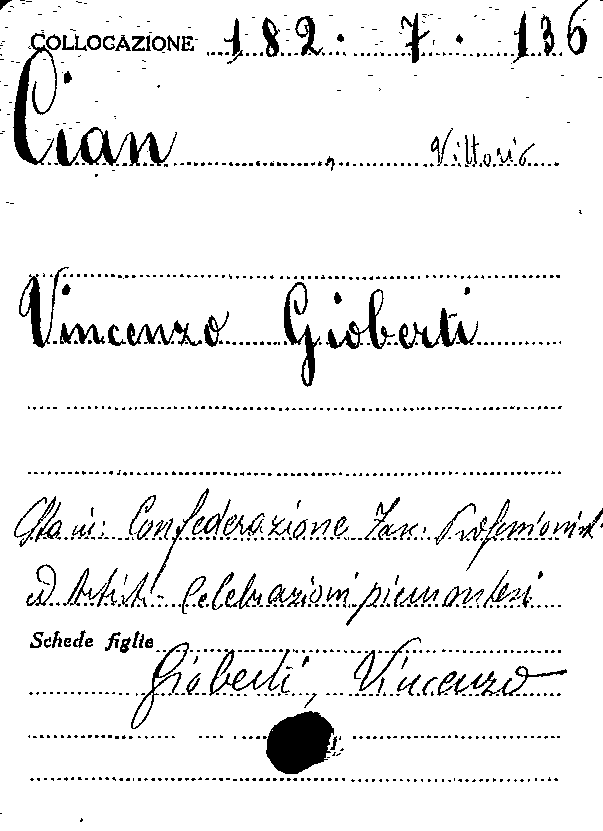 COLLOCAZIONE 182. 7. 136
Cian, Vittorio
Vincenzo Gioberti
Sta in: Confederazione Fasc. Professionisti
ed Artisti - Celebrazioni piemontesi
Schede figlie
Gioberti, Vincenzo